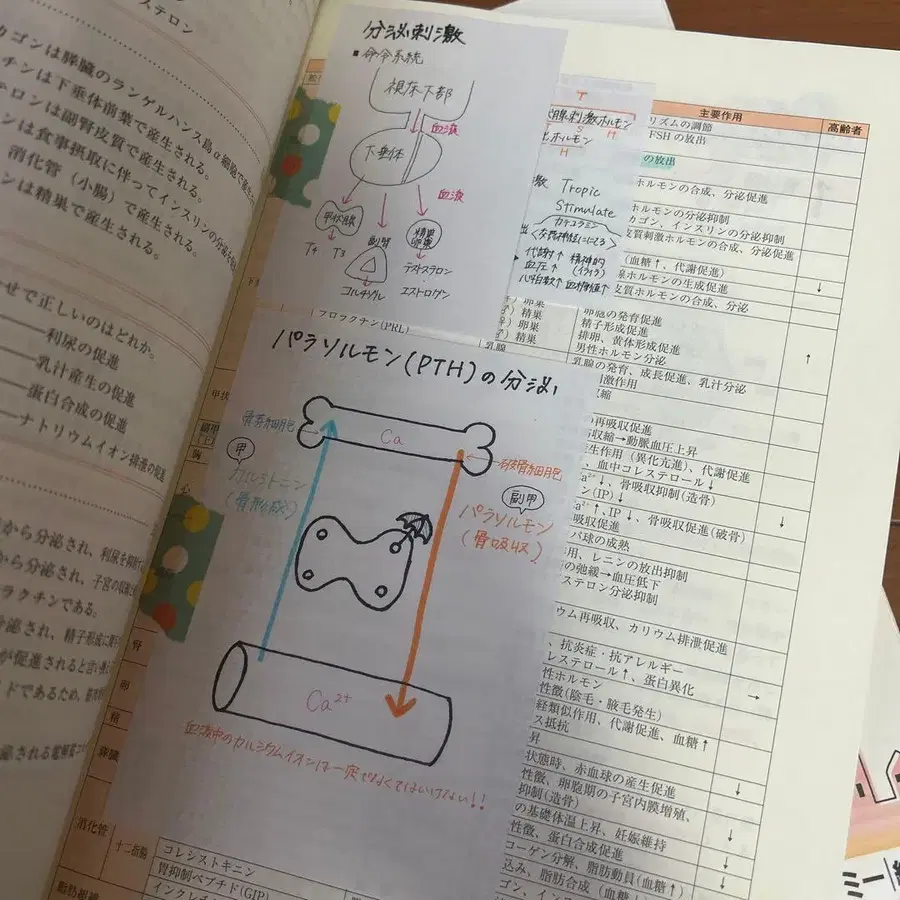 ステロン
カゴンは膵臓のランゲルハンス島α細胞で産生
チンは下垂体前葉で産生される。
テロンは副腎皮質で産生される。
ンは食事摂取に伴ってインスリンの分泌を
消化管（小腸）で産生される。
ンは精巣で産生される。
せで正しいのはどれか。
――利尿の促進
――乳汁産生の促進
――蛋白合成の促進
――ナトリウムイオン排泄の促進
から分泌され、利尿を抑制
から分泌され、子宮の収縮
ラクチンである。
分泌され、精子形成に
が促進されると言い
ドであるため、
泌される電解質コ
分泌刺激
■命令系統
視床下部
血液
下垂体
血液
甲状腺
副腎
精巣
卵巣
T4 T3
コルチゾル
テストステロン
エストロゲン
T
腺刺激ホルモン
T S H
出ホルモン
H
激 Tropic
Stimulate
カテコラミン
く交感神経ににてる
代謝↑ 精神的
血圧↑ (イライラ)
心拍数↑ 血糖値↑
パラソルモン(PTH)の分泌
骨芽細胞
Ca
破骨細胞
甲
カルシトニン
(骨形成)
副甲
パラソルモン
(骨吸収)
Ca²⁺
血液中のカルシウムイオンは一定でなくてはいけない!!
主要作用 高齢者
リズムの調節
FSH の放出
の放出
ホルモンの合成、分泌促進
ホルモンの分泌抑制
カゴン、インスリンの分泌抑制
皮質刺激ホルモンの合成、分泌促進
（血糖↑、代謝促進）
泉ホルモンの生成促進 ↓
支質ホルモンの合成、分泌
プロラクチン(PRL)
卵巣 卵胞の発育促進
精巣 精子形成促進
卵巣 排卵、黄体形成促進
精巣 男性ホルモン分泌 ↑
乳腺 乳腺の発育、成長促進、乳汁分泌
刺激作用
収縮
の再吸収促進
収縮→動脈血圧上昇
産生作用（異化亢進）、代謝促進
、血中コレステロール↓
a²⁺↓、骨吸収抑制(造骨)
ン(IP)↓
a²⁺↑、IP↓、骨吸収促進(破骨) ↓
吸収促進
パ球の成熟
用、レニンの放出抑制
の弛緩→血圧低下
ステロン分泌抑制
ウム再吸収、カリウム排泄促進
、抗炎症・抗アレルギー
レステロール↑、蛋白異化 →
性ホルモン
性徴（陰毛・腋毛発生）
経類似作用、代謝促進、血糖↑
ス抵抗
昇
状態時、赤血球の産生促進
性徴、卵胞期の子宮内膜増殖、
抑制(造骨) ↓
の基礎体温上昇、妊娠維持
性徴、蛋白合成促進 ↓
コーゲン分解、脂肪動員（血糖↑） ↓
込み、脂肪合成（血糖↓） ↓
甲状
副甲
胸
心
腎
副
卵
精
膵臓
消化管
十二指腸
コレシストキニン
胃抑制ペプチド(GIP)
脂肪組織
ミー